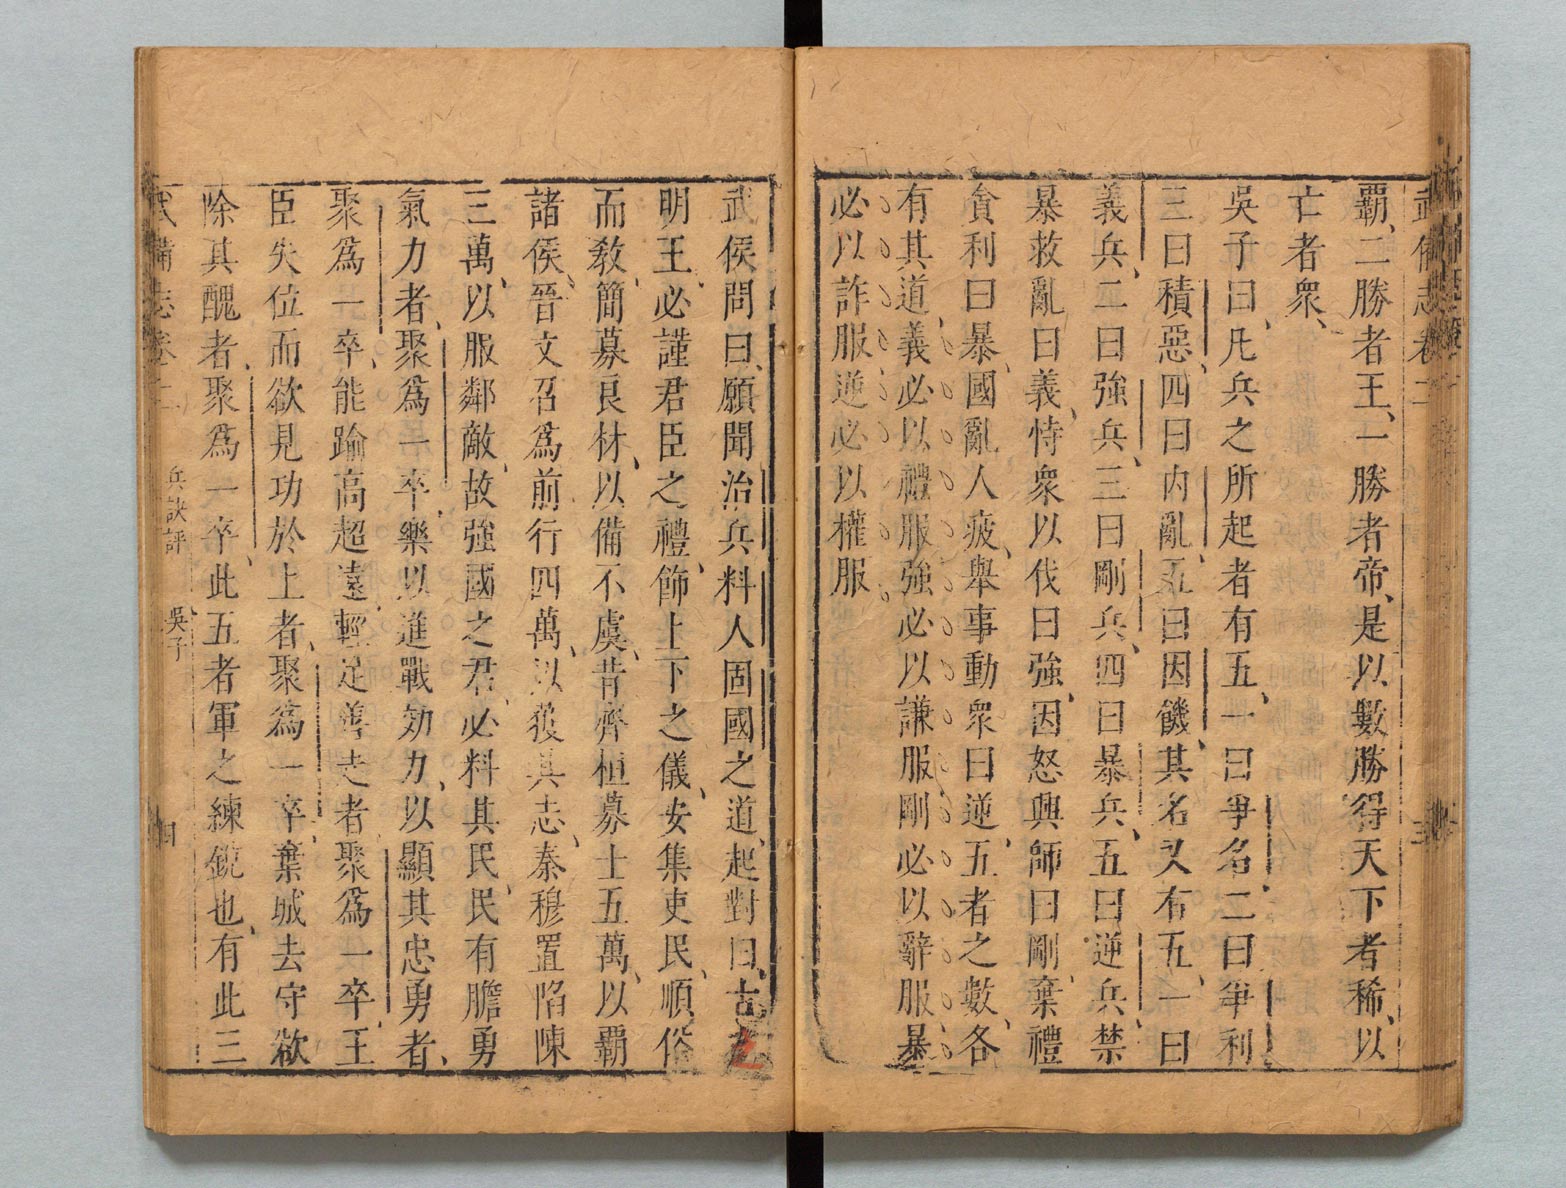 武備志卷二
覇、二勝者王、一勝者帝、是以數勝得天下者稀、以
亡者衆、
吳子曰、凡兵之所起者有五、一曰爭名、二曰爭利
三曰積惡、四曰内亂、五曰因饑、其名又有五、一曰
義兵、二曰強兵、三曰剛兵、四曰暴兵、五曰逆兵、禁
暴救亂曰義、恃衆以伐曰強、因怒興師曰剛、棄禮
貪利曰暴、國亂人疲、舉事動衆曰逆、五者之數、各
有其道、義必以禮服、強必以謙服、剛必以辭服、暴
必以詐服、逆必以權服、
武侯問曰、願聞治兵料人固國之道、起對曰、古之
明王、必謹君臣之禮、飾上下之儀、安集吏民、順俗
而教、簡募良材、以備不虞、昔齊桓募士五萬、以覇
諸侯、晉文召爲前行四萬、以獲其志、秦穆置陷陳
三萬、以服鄰敵、故強國之君、必料其民、民有膽勇
氣力者、聚爲一卒、樂以進戰効力、以顯其忠勇者、
聚爲一卒、能踰高超遠、輕足善走者聚爲一卒、王
臣失位而欲見功於上者、聚爲一卒、棄城去守欲
除其醜者、聚爲一卒、此五者軍之練銳也、有此三
武備志卷二 兵訣評 吳子 四